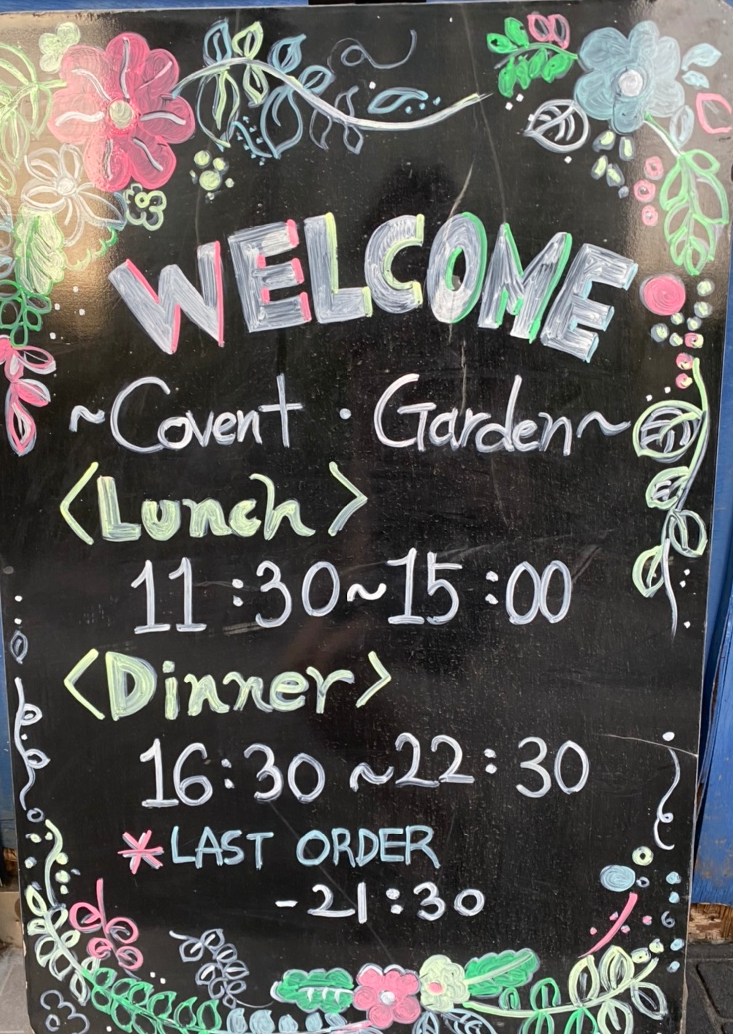 WELCOME
~Covent・Garden~
<Lunch>
11:30~15:00
<Dinner>
16:30~22:30
*LAST ORDER
-21:30